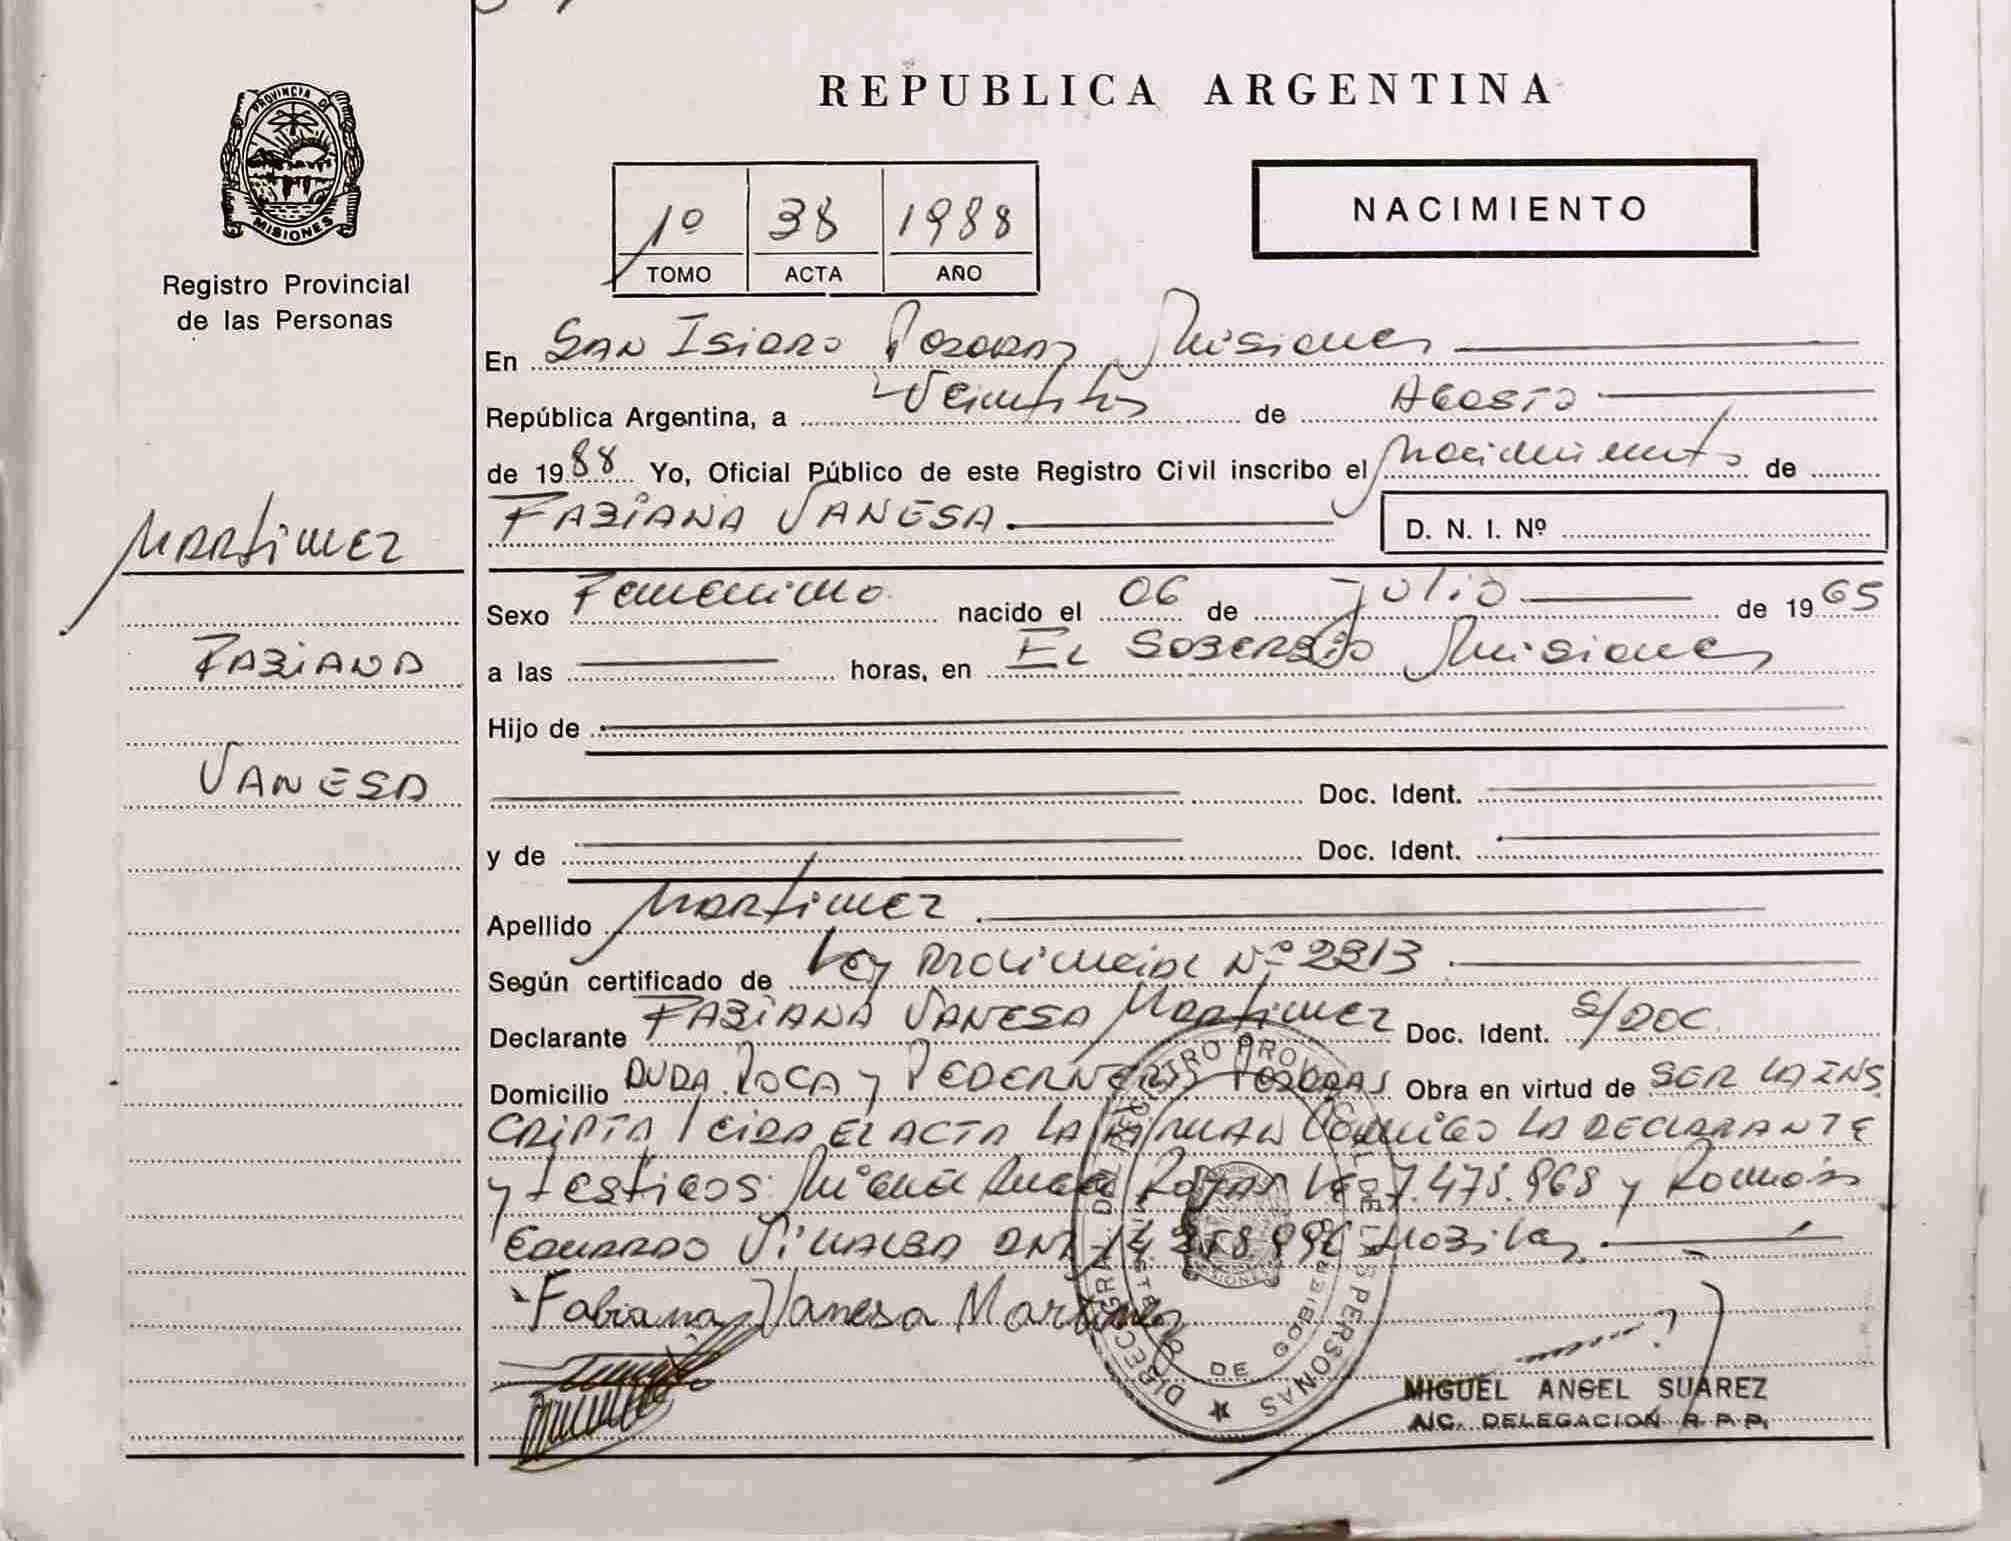 REPUBLICA ARGENTINA
PROVINCIA DE
MISIONES
Registro Provincial
de las Personas
1º 38 1988
TOMO ACTA AÑO
NACIMIENTO
En San Isidro Posadas Misiones
República Argentina, a de Agosto
de 1988 Yo, Oficial Público de este Registro Civil inscribo el nacimiento de
FABIANA VANESA
D. N. I. Nº
Martinez
FABIANA
VANESA
Sexo Femenino nacido el 06 de Julio de 1965
a las horas, en El SOBERBIO Misiones
Hijo de
Doc. Ident.
y de Doc. Ident.
Apellido Martinez
Según certificado de Ley Provincial Nº 2213
Declarante FABIANA VANESA Martinez Doc. Ident. S/DOC
Domicilio AVDA. ROCA y PEDERNERA POSADAS Obra en virtud de SER LA INS
CRIPTA leida EL ACTA LA FIRMAN Conmigo LA DECLARANTE
y testigos: Rojas y Ramón
EDUARDO VILLALBA DNI
Fabiana Vanesa Martinez
DIRECC. GRAL. DEL REGISTRO PROVINCIAL DE LAS PERSONAS
MINISTERIO DE GOBIERNO
MISIONES
MIGUEL ANGEL SUAREZ
A/C. DELEGACION R.P.P.